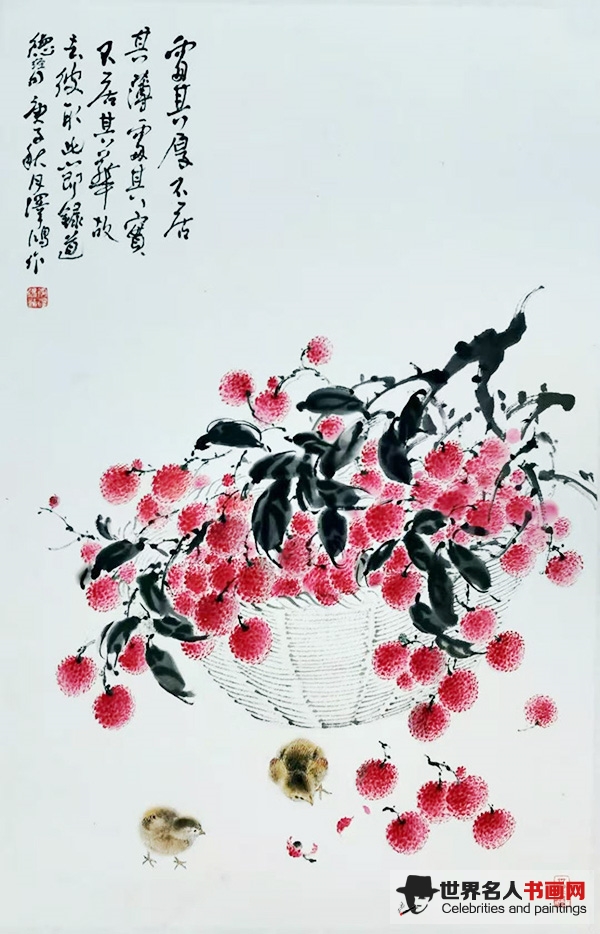 處其厚不居
其薄處其實
不居其華故
去彼取此節錄道
德經句庚子秋月澤鴻作
世界名人书画网
Celebrities and paintings